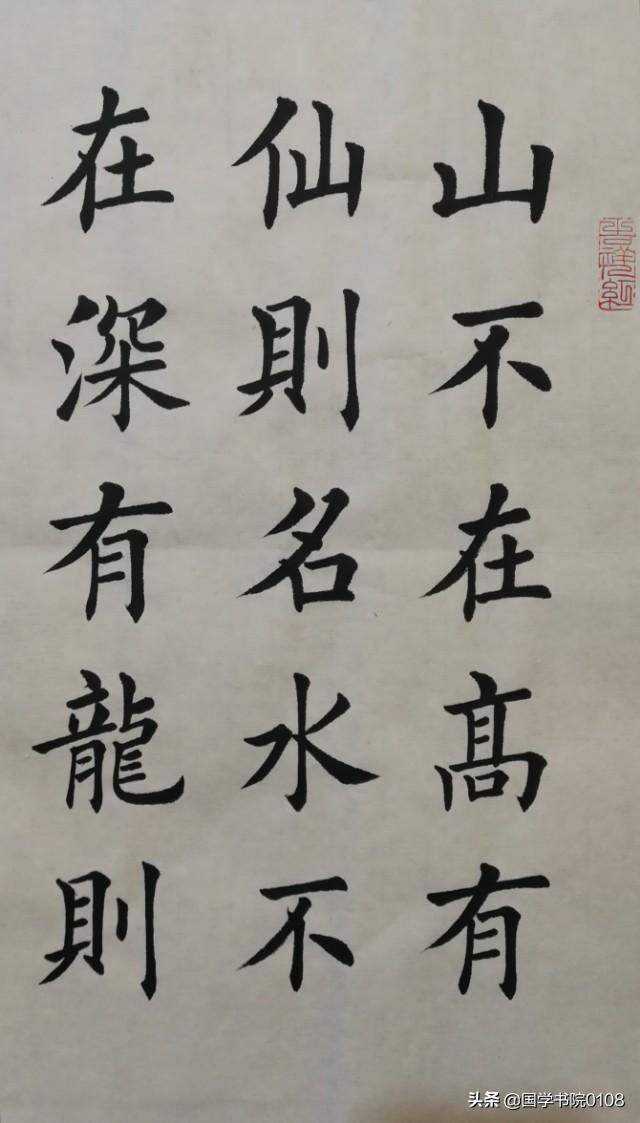 山不在髙有
仙則名水不
在深有龍則
头条 @国学书院0108